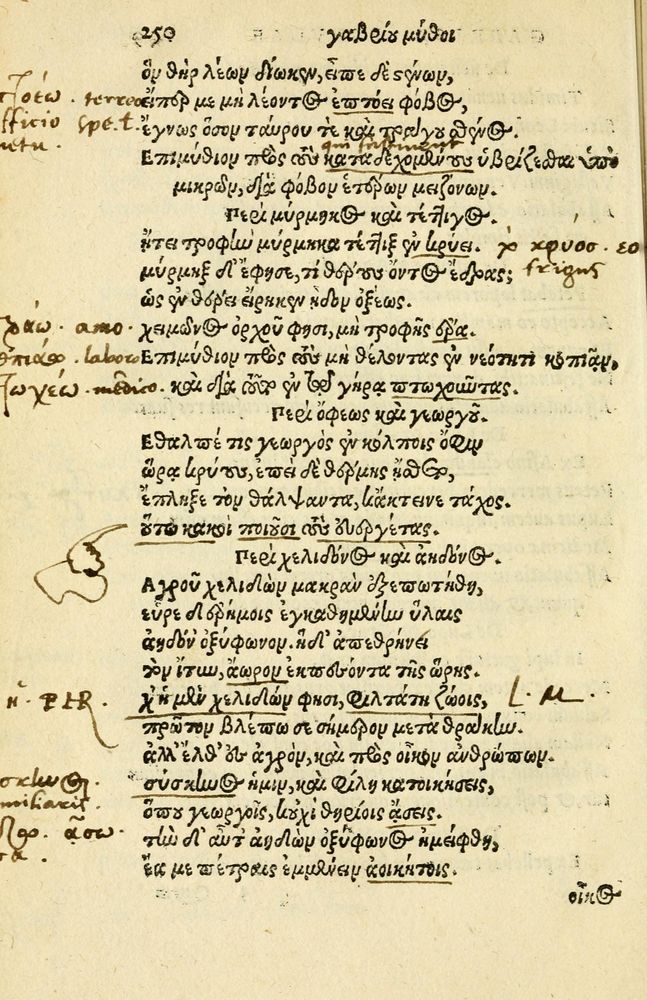 250 γαβρίου μύθοι
ὃν θὴρ λέων διώκων, εἶπε δὲ στένων,
εἴπερ με μὴ λέοντος ἐπτόει φόβος,
ἔγνως ὅσον ταύρου τε καὶ τράγου σθένος.
Επιμύθιον πρὸς τοὺς καταδεχομένους ὑβρίζεσθαι ὑπὸ
μικρῶν, διὰ φόβον ἑτέρων μειζόνων.
Περὶ μύρμηκος καὶ τέτλιγος.
ᾔτει τροφὴν μύρμηκα τέτλιξ ἐν κρύει.
μύρμηξ δ' ἔφησε, τί θέρους ὄντος ἔδρας;
ὡς ἐν θέρει εἴρηκεν ᾖδον ὀξέως.
χειμῶνος ὀρχοῦ φησι, μὴ τροφῆς ἔρα.
Επιμύθιον πρὸς τοὺς μὴ θέλοντας ἐν νεότητι κοπιᾷν,
καὶ διὰ τοῦτο ἐν τῷ γήρᾳ πτωχοῦντας.
Περὶ ὄφεως καὶ γεωργοῦ.
Εθαλπέ τις γεωργὸς ἐν κόλποις ὄφιν
ὥρᾳ κρύους, ἐπεὶ δὲ θέρμης ᾔσθετο,
ἔπληξε τὸν θάλψαντα, κἄκτεινε τάχος.
οὕτω κακοὶ ποιοῦσι τοὺς εὐεργέτας.
Περὶ χελιδόνος καὶ ἀηδόνος.
Αγροῦ χελιδὼν μακρὰν ἐξεπωτήθη,
εὗρε δ' ἐρήμοις ἐγκαθημένην ὕλαις
ἀηδόν' ὀξύφωνον. ἡ δ' ἀπεθρήνει
τὸν ἴτυν, ἄωρον ἐκπεσόντα τῆς ὥρης.
χ' ἡ μὲν χελιδών φησι, φιλτάτη ζώοις,
πρῶτον βλέπω σε σήμερον μετὰ θρᾴκην.
ἀλλ' ἔλθ' ἐς ἀγρὸν, καὶ πρὸς οἶκον ἀνθρώπων.
σύσκηνος ἡμῖν, καὶ φίλη κατοικήσεις,
ὅπου γεωργοῖς, κοὐχὶ θηρίοις ᾄσεις.
τὴν δ' αὖτ' ἀηδὼν ὀξύφωνος ἠμείφθη,
ἔα με πέτραις ἐμμένειν ἀοικήτοις.
οἶκος
terreo
spe.t.
χ κρύος . εο
frigus
amo .
laboro
mendico .
η . PER .
L . M .
miliaris
ᾄσω .